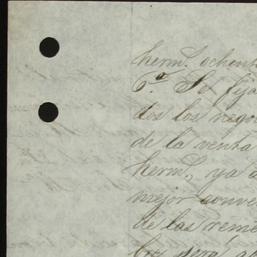 herm. ochent
6ª Se fija
dos los nego
de la venta
herm., ya a
mejor conve
de las reme